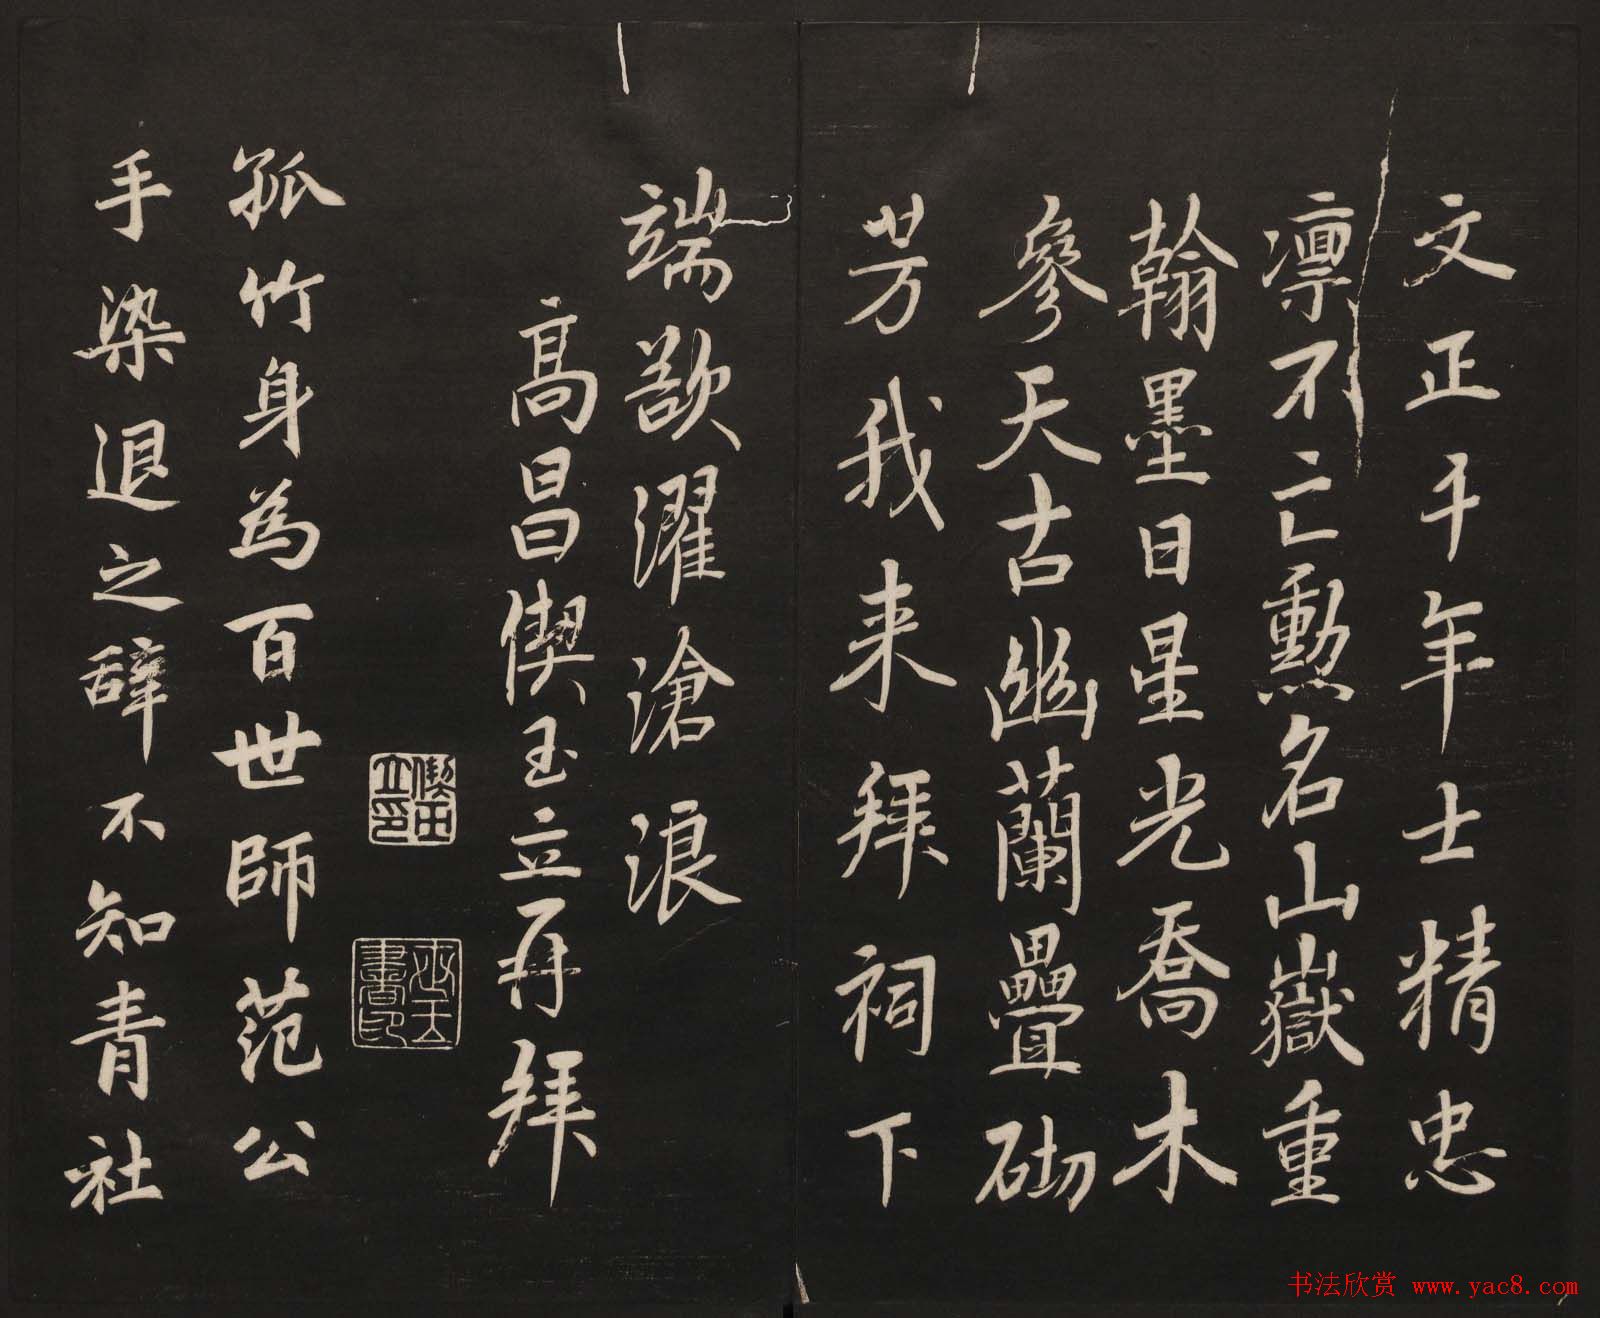 文正千年士精忠
凛不亡勳名山嶽重
翰墨日星光喬木
參天古幽蘭疊砌
芳我来拜祠下
端欲濯滄浪
高昌偰玉立再拜
偰玉立印
世玉書印
孤竹身為百世師范公
手染退之辞不知青社
书法欣赏 www.yac8.com